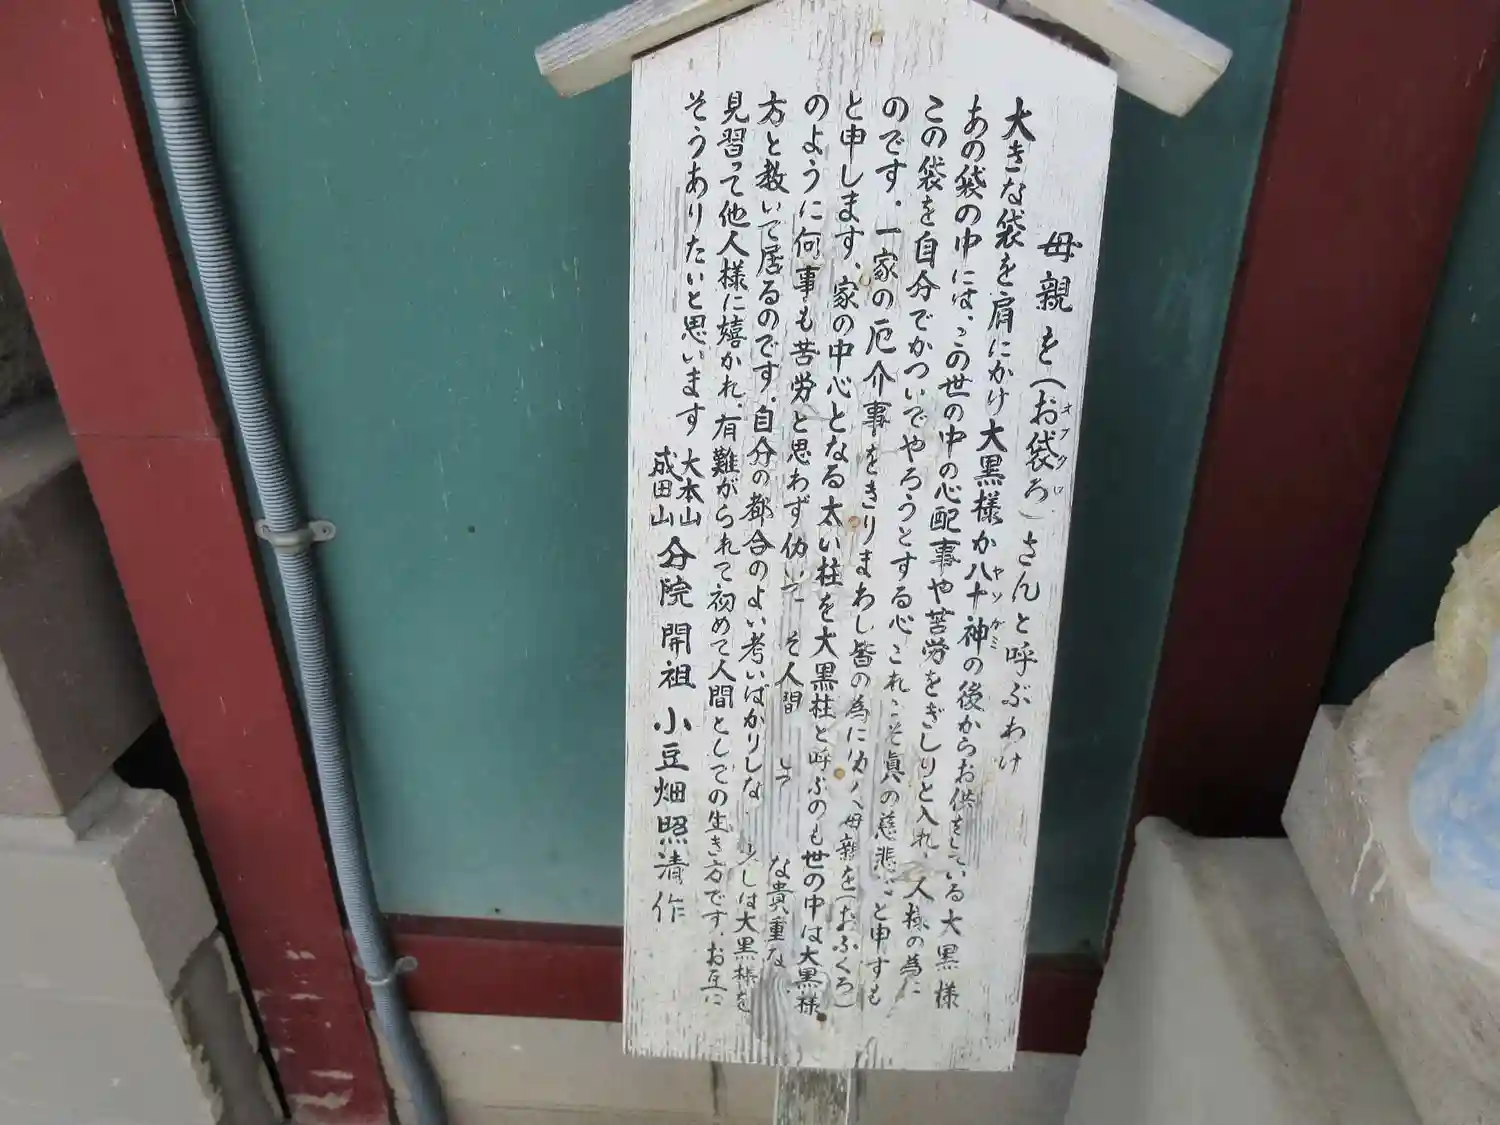 母親を（お袋ろ）さんと呼ぶわけ
オフクロ
大きな袋を肩にかけ大黒様か八十神の後からお供をしている大黒様
ヤソガミ
あの袋の中には、この世の中の心配事や苦労をぎしりと入れ、人様の為に
この袋を自分でかついでやろうとする心これこそ眞の慈悲だと申すも
のです。一家の厄介事をきりまわし皆の為に働く母親を（おふくろ）
と申します、家の中心となる太い柱を大黒柱と呼ぶのも世の中は大黒様
のように何事も苦労と思わず働いて そ人間 して な貴重な
方と教いて居るのです。自分の都合のよい考いばかりしな 少しは大黒様を
見習って他人様に嬉かれ、有難がられて初めて人間としての生き方です。お互に
そうありたいと思います
大本山
成田山
分院開祖 小豆畑照清作